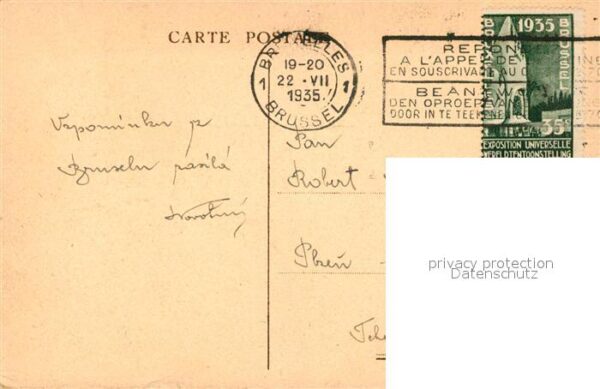 CARTE POSTALE
BRUXELLES
1 19-20 1
22 · VII
1935
BRUSSEL
REPON
A L'APPEL DE
EN SOUSCRIVA AU
BEAN W
DEN OPROEP VA
DOOR IN TE TEEKENE
1935
BRUSSEL
35c
EXPOSITION UNIVERSELLE
WERELDTENTOONSTELLING
Vzpomínku z
Bruselu zasílá
Novotný
Pan
Robert
Plzeň
privacy protection
Datenschutz